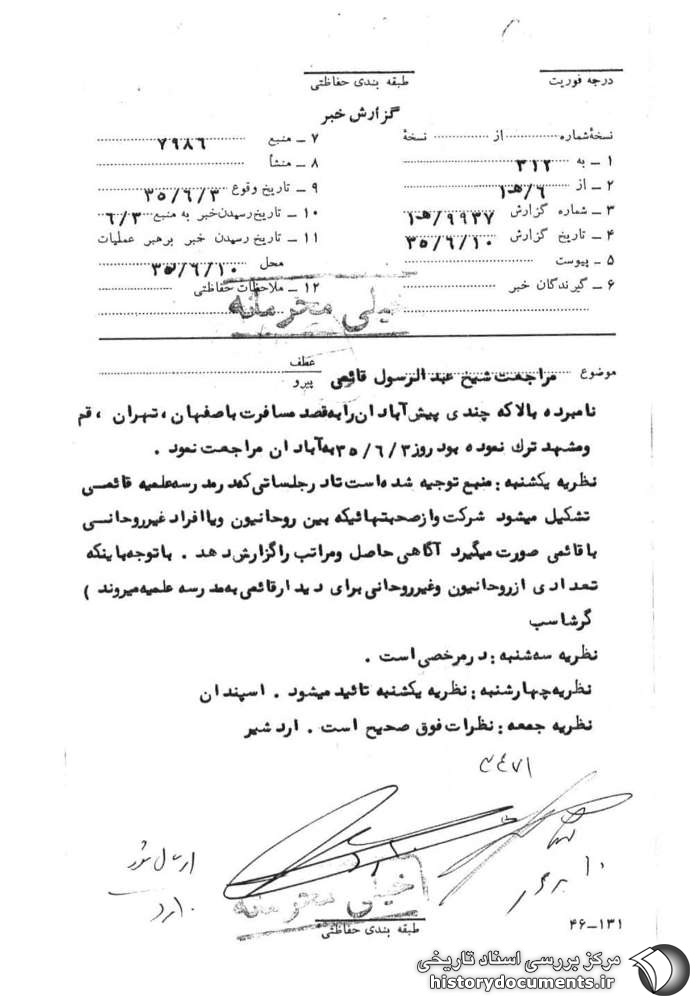 درجه فوریت
طبقه بندی حفاظتی
گزارش خبر
نسخهٔ شماره ........ از ........ نسخهٔ
۱ ـ به ۳۱۲
۲ ـ از ۶/هـ۱
۳ ـ شماره گزارش ۹۹۳۷/هـ۱
۴ ـ تاریخ گزارش ۳۵/۶/۱۰
۵ ـ پیوست
۶ ـ گیرندگان خبر
۷ ـ منبع ۷۹۸۶
۸ ـ منشأ
۹ ـ تاریخ وقوع ۳۵/۶/۳
۱۰ ـ تاریخ رسیدن خبر به منبع ۶/۳
۱۱ ـ تاریخ رسیدن خبر برهبر عملیات
محل ۳۵/۶/۱۰
۱۲ ـ ملاحظات حفاظتی
خیلی محرمانه
موضوع مراجعت شیخ عبدالرسول قائمی
عطف
پیرو
نامبرده بالا که چندی پیش آبادان را به قصد مسافرت باصفهان ، تهران ، قم
ومشهد ترك نموده بود روز ۳۵/۶/۳ به آبادان مراجعت نمود .
نظریه یکشنبه : منبع توجیه شده است تا در جلساتی که در مدرسه علمیه قائمی
تشکیل میشود شرکت و از صحبتهائیکه بین روحانیون ویا افراد غیر روحانی
با قائمی صورت میگیرد آگاهی حاصل ومراتب را گزارش دهد . با توجه باینکه
تعدادی از روحانیون وغیر روحانی برای دیدار قائمی به مدرسه علمیه میروند )
گرشاسب
نظریه سه شنبه : در مرخصی است .
نظریه چهارشنبه : نظریه یکشنبه تائید میشود . اسپندان
نظریه جمعه : نظرات فوق صحیح است . اردشیر
ارسال شود
خیلی محرمانه
طبقه بندی حفاظتی
۴۶-۱۳۱
مرکز بررسی اسناد تاریخی
historydocuments.ir